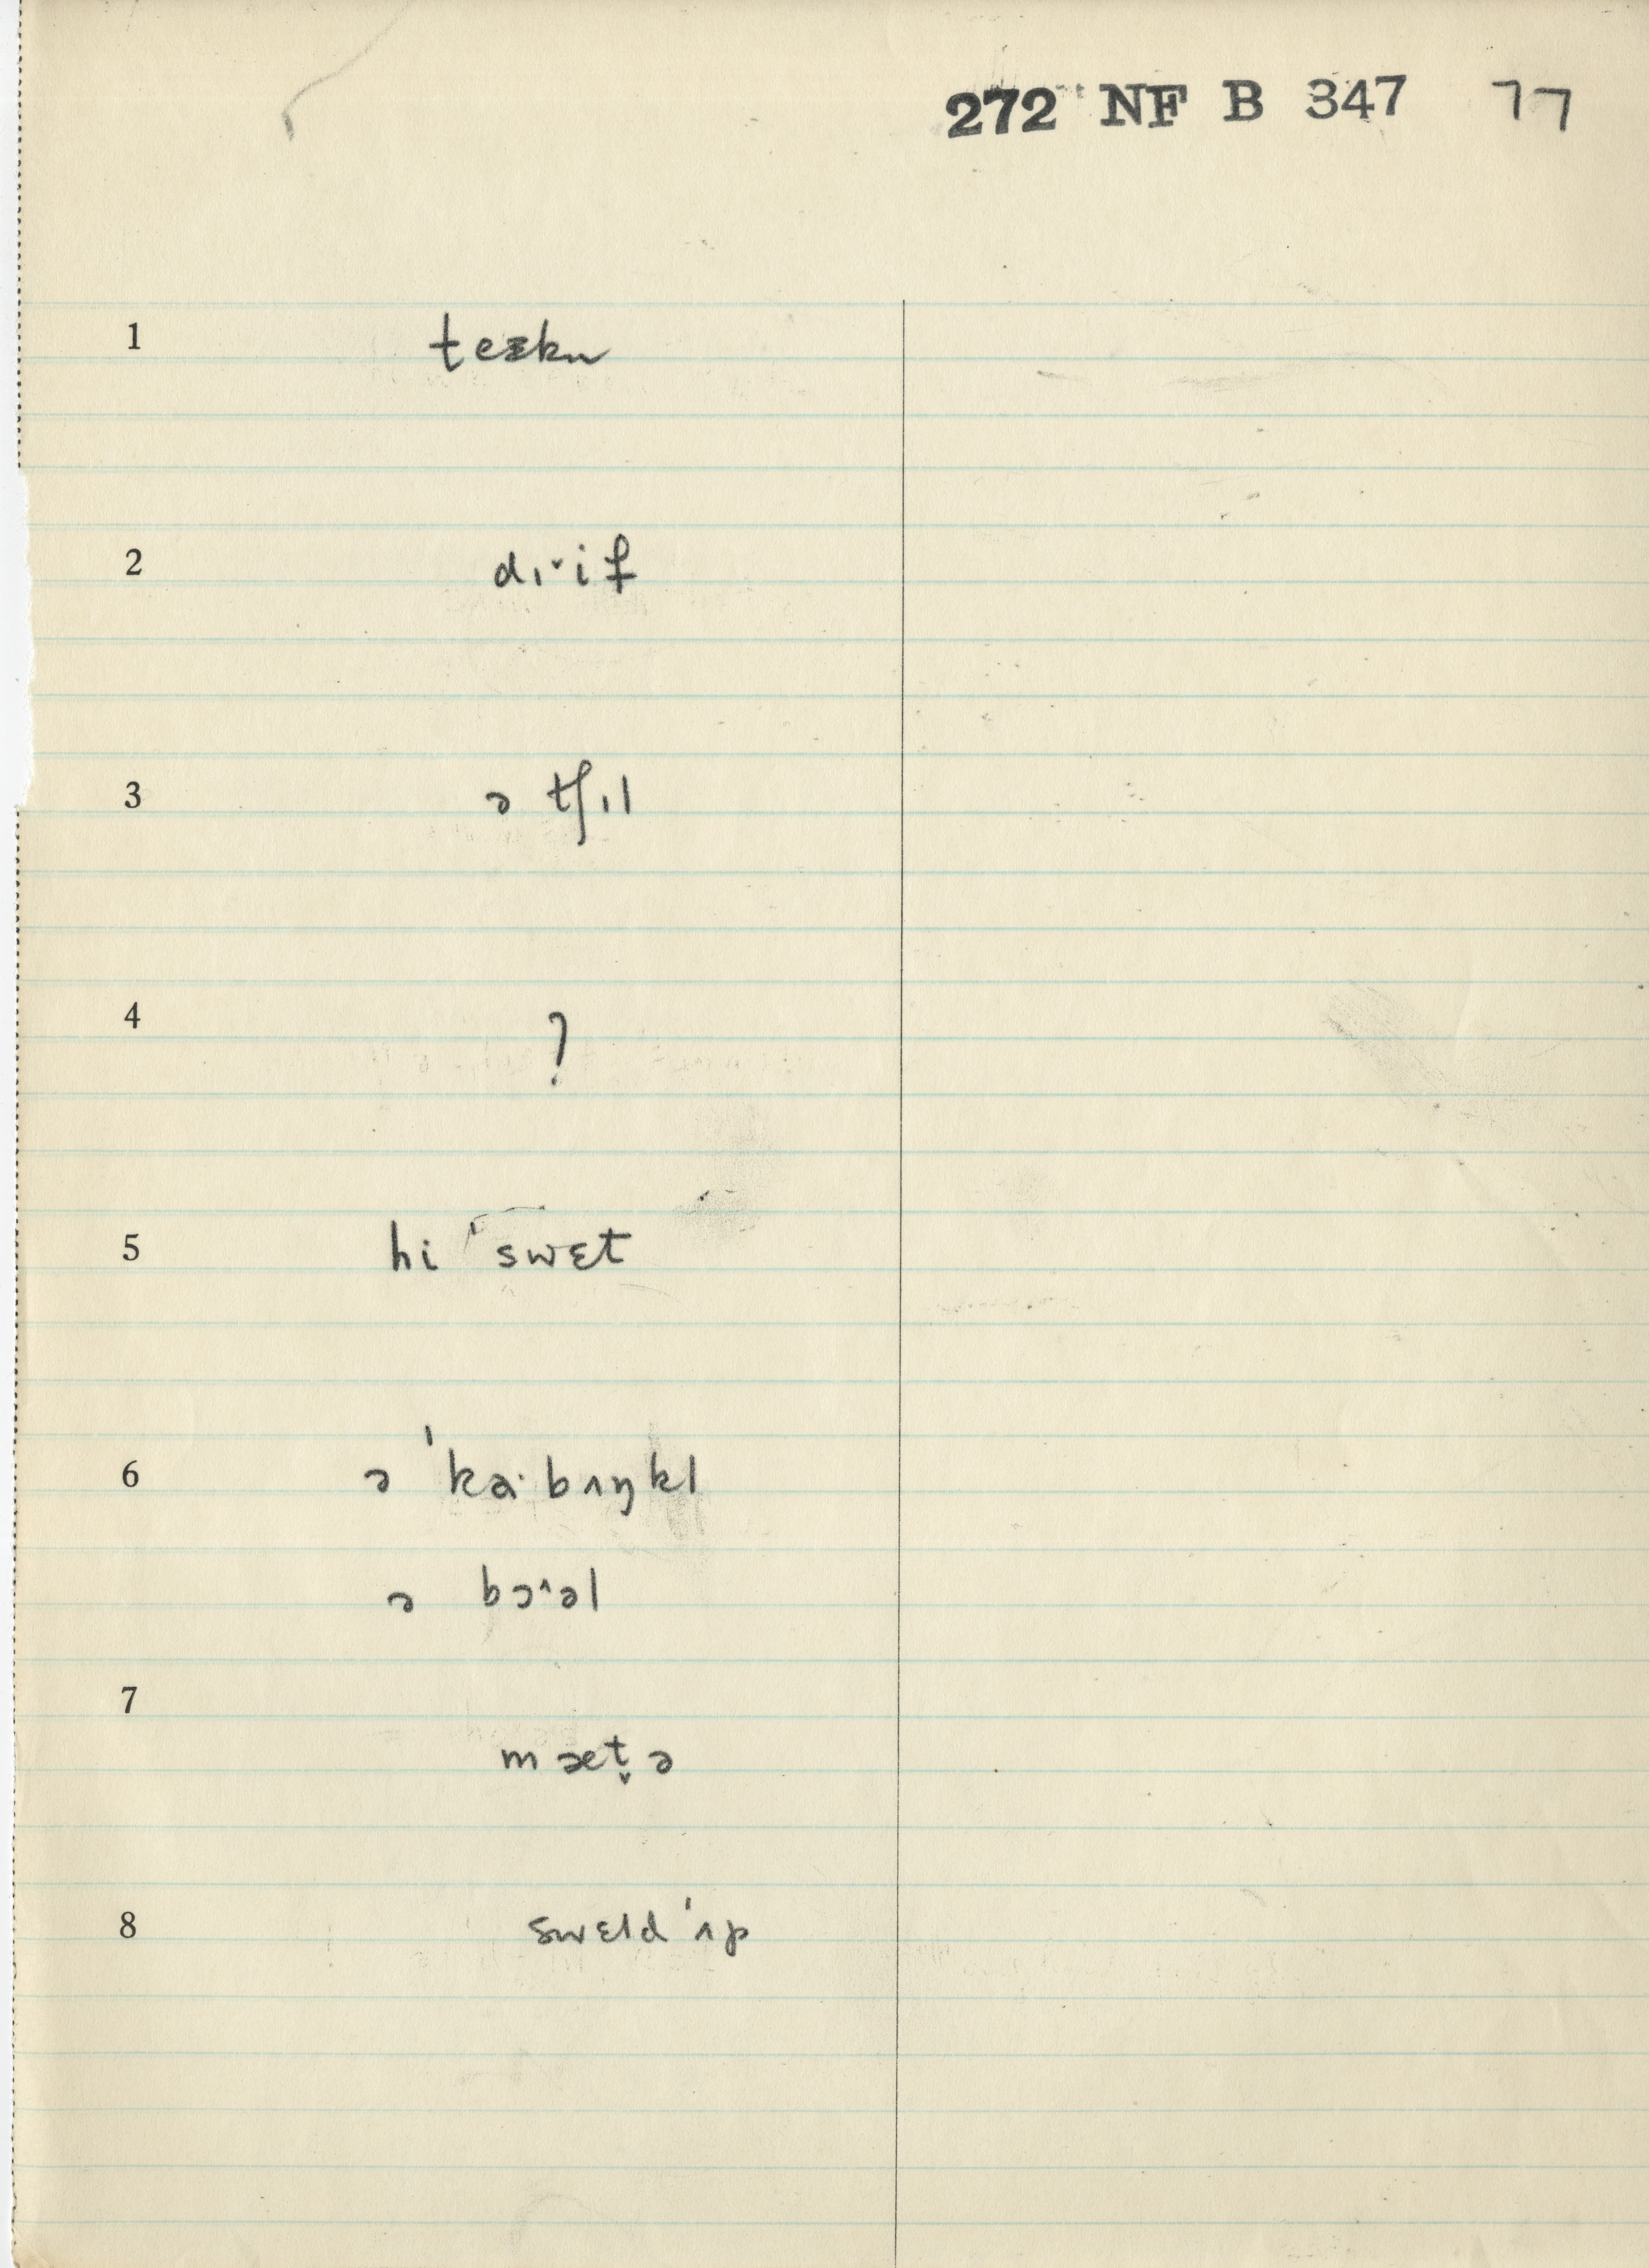 272 NF B 347 77
1
2 dɪ˅if
3 ə tʃɪl
4 ?
5 hi ˈswɛt
6 ə ˈkɑ·bʌŋkl
ə bɔ^əl
7
mæt̬ə
8 swɛld ˈʌp